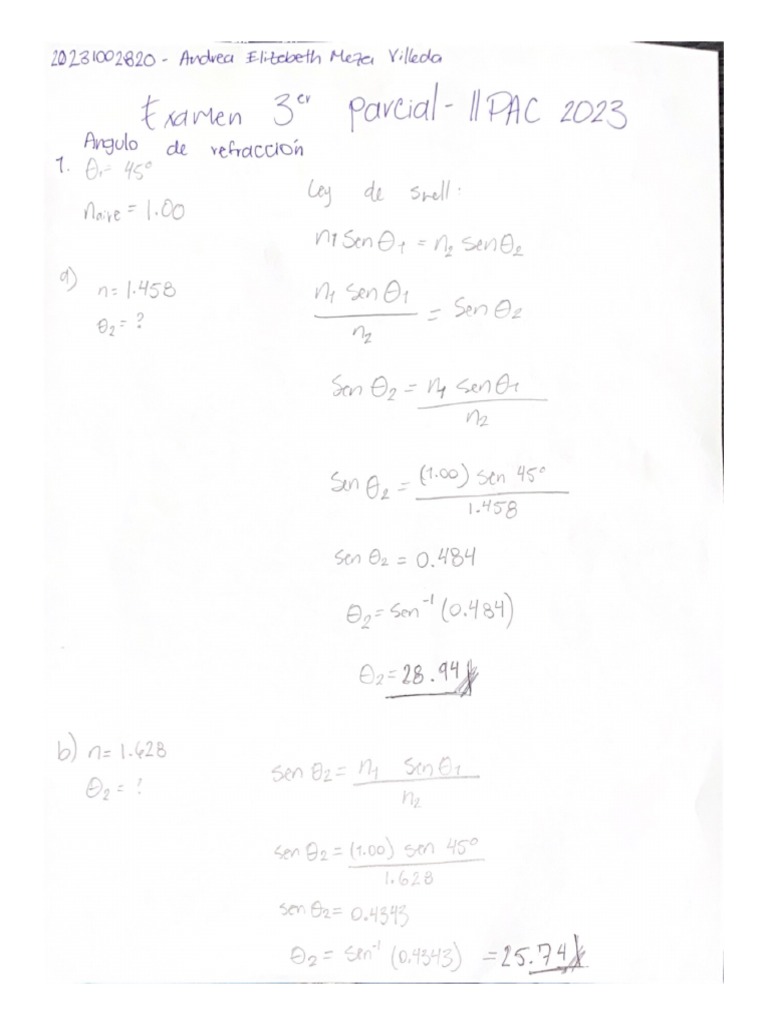 20231002820 - Andrea Elizabeth Meza Villeda
Examen 3er parcial - II PAC 2023
Angulo de refracción
1. θ₁= 45°
naire = 1.00
Ley de snell:
n1 Sen θ1 = n2 Sen θ2
a) n= 1.458
θ2 = ?
n1 Sen θ1 / n2 = Sen θ2
Sen θ2 = n1 Sen θ1 / n2
Sen θ2 = (1.00) Sen 45° / 1.458
Sen θ2 = 0.484
θ2 = Sen⁻¹ (0.484)
θ2 = 28.94
b) n= 1.628
θ2 = ?
Sen θ2 = n1 Sen θ1 / n2
Sen θ2 = (1.00) Sen 45° / 1.628
Sen θ2 = 0.4343
θ2 = Sen⁻¹ (0.4343) = 25.74